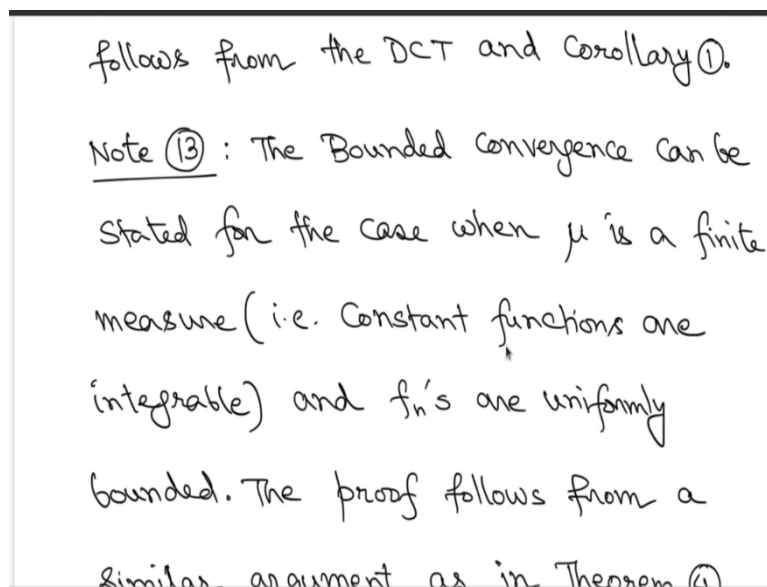 follows from the DCT and Corollary ①.
Note ⑬ : The Bounded Convergence can be
stated for the case when μ is a finite
measure (i.e. Constant functions are
integrable) and fn's are uniformly
bounded. The proof follows from a
similar argument as in Theorem ④